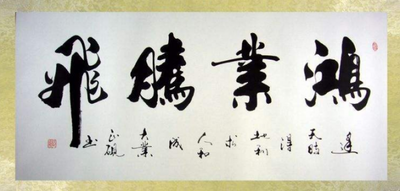 鴻業騰飛
逢 天時 得 地利 人和 成 大業 书